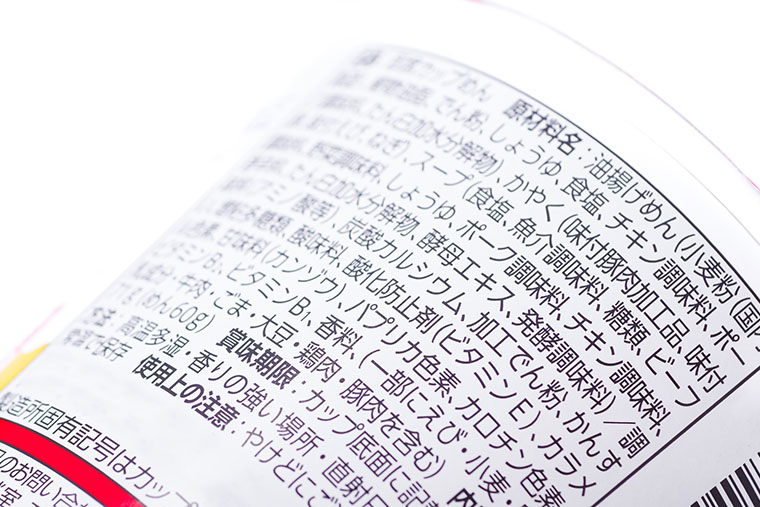 即席カップめん 原材料名：油揚げめん(小麦粉(国
でん粉、しょうゆ、食塩、チキン調味料、ポー
たん白加水分解物)、かやく(味付豚肉加工品、味付
ねぎ)、スープ(食塩、魚介調味料、糖類、ビーフ
野菜調味料、しょうゆ、ポーク調味料、チキン調味料、
たん白加水分解物、酵母エキス、発酵調味料)／調
(アミノ酸等)、炭酸カルシウム、加工でん粉、かんす
増粘多糖類、酸味料、酸化防止剤(ビタミンE)、カラメ
甘味料(カンゾウ)、パプリカ色素、カロチン色素
ビタミンB₂、ビタミンB₁、香料、(一部にえび・小麦・
牛肉・ごま・大豆・鶏肉・豚肉を含む) 内
(めん60g) 賞味期限：カップ底面に記
高温多湿・香りの強い場所・直射日
常温で保存 使用上の注意：やけどにご
製造所固有記号はカップ
のお問い合わ
室